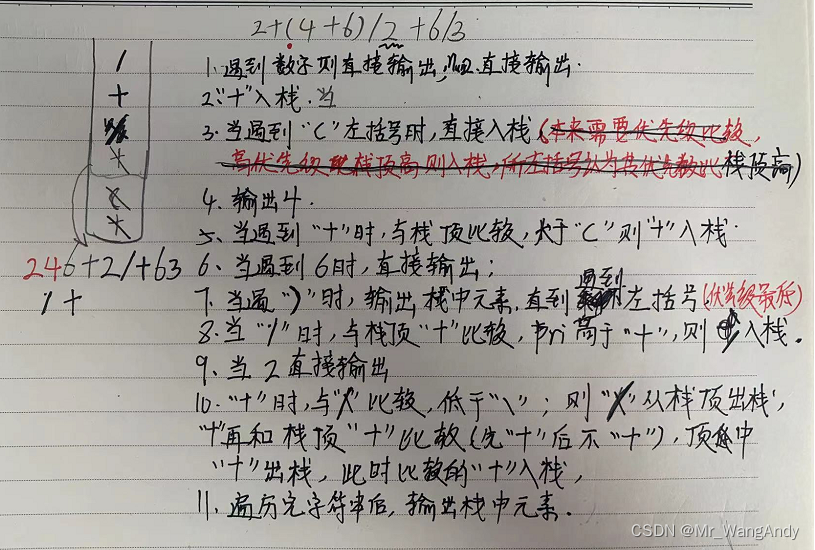 2+(4+6)/2+6/3
1.遇到数字则直接输出,直接输出.
/
+
2."+"入栈.当
3.当遇到"("左括号时,直接入栈(本来需要优先级比较,
高优先级栈顶高则入栈,所左括号认为其优先级比栈顶高)
4.输出4.
5、当遇到"+"时,与栈顶比较,大于"("则"+"入栈.
246+2/+63
/+
6、当遇到6时,直接输出;
7.当遇")"时,输出栈中元素,直到遇到左括号(优先级最低)
8.当"/"时,与栈顶"+"比较,pri高于"+",则入栈.
9、当2直接输出
10."+"时,与"/"比较,低于"\";则"/"从栈顶出栈,
"+"再和栈顶"+"比较(先"+"后不"+"),顶中
"+"出栈,此时比较的"+"入栈,
11、遍历完字符串后,输出栈中元素.
CSDN @Mr_WangAndy